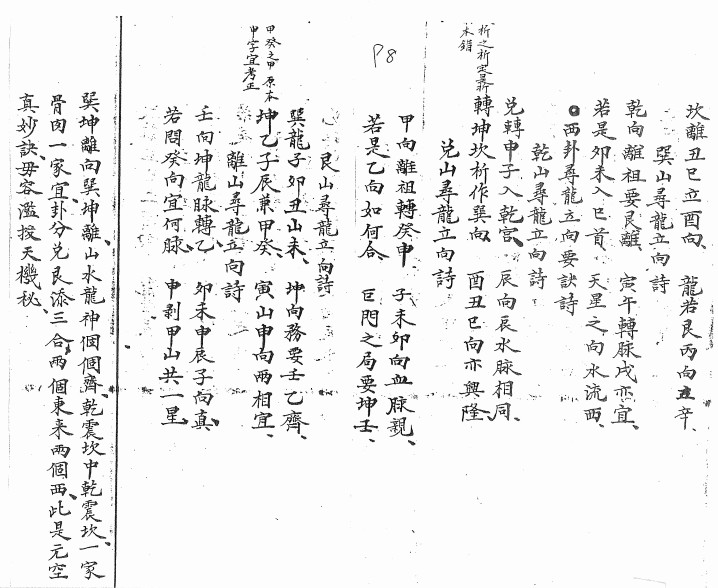 坎離丑巳立酉向、　龍若艮丙向主辛、
巽山尋龍立向詩
乾向離祖要艮離、　寅午轉脉戌亦宜、
若是卯未入巳首、　天星之向水流西、
西卦尋龍立向要訣詩
乾山尋龍立向詩
兌轉申子入乾宮、　辰向辰水脉相同、
轉坤坎析作巽向、　酉丑巳向亦興隆
析之析定是
未錯
兌山尋龍立向詩
P8
甲向離祖轉癸申　子未卯向血脉親、
若是乙向如何合　巨門之局要坤壬、
艮山尋龍立向詩
巽龍子卯丑山未、　坤向務要壬乙齊、
坤乙子辰兼甲癸、　寅山申向兩相宜、
甲癸之甲原本
申字宜考正
離山尋龍立向詩
壬向坤龍脉轉乙　卯未申辰子向真、
若問癸向宜何脉　申剥甲山共一星、
巽坤離向巽坤離、山水龍神個個齊、乾震坎中乾震坎、一家
骨肉一家宜、卦分兌艮添三合、兩個東來兩個西、此是元空
真妙訣、毋容濫授天機秘、